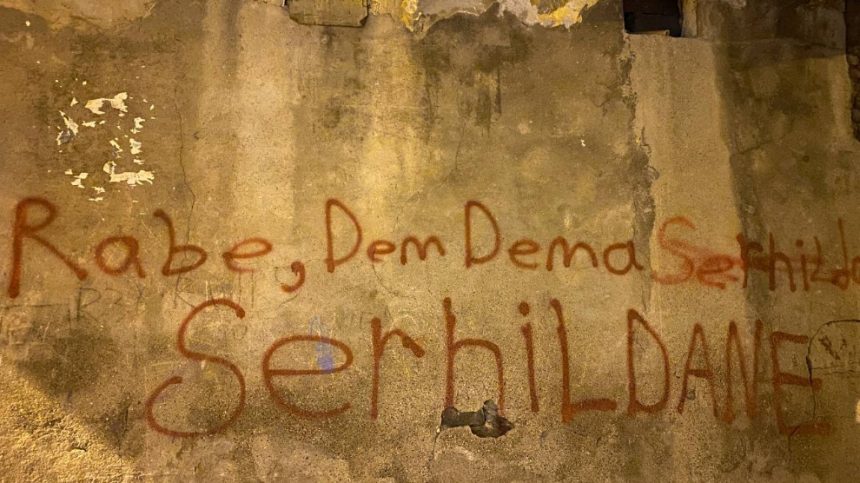 Rabe, Dem Dema
SerhiLDANE